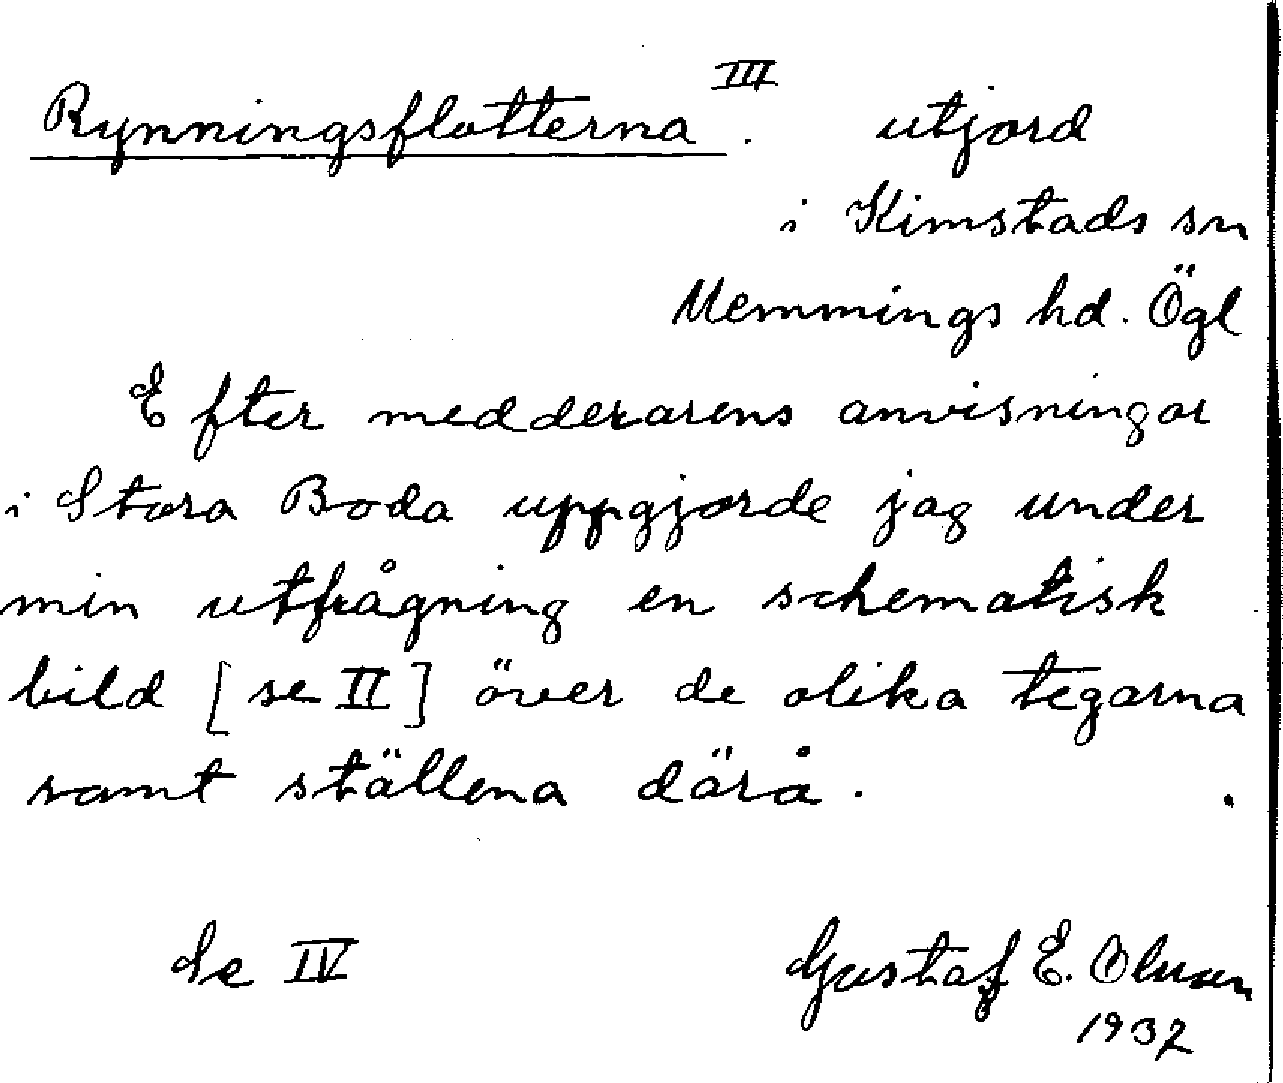 Rynningsflatterna III. utjord
i Kimstads sn
Memmings hd. Ögl
Efter meddelarens anvisningar
i Stora Boda uppgjorde jag under
min utfrågning en schematisk
bild [se II] över de olika tegarna
samt ställena därå.
Se IV Gustaf E. Olsson
1937